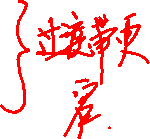 过渡带更
宽.